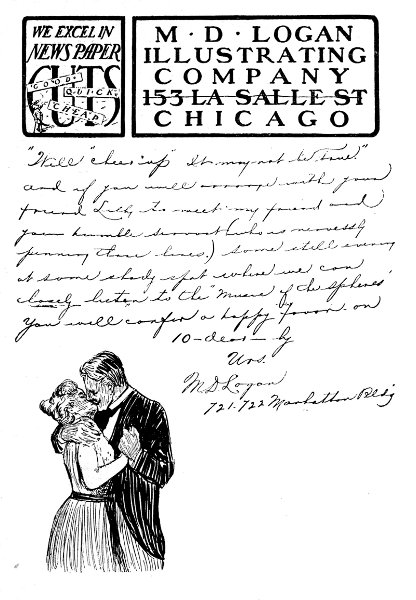 WE EXCEL IN
NEWS PAPER
CUTS
GOOD
QUICK
CHEAP
M · D · LOGAN
ILLUSTRATING
COMPANY
153 LA SALLE ST
CHICAGO
"Well "cheer up" It may not be True."
and if you will arrange with your
friend to meet my friend and
your humble servant (who is nervously
penning these lines.) some still evening
at some shady spot where we can
closely listen to the "Music of the Spheres"
You will confer a happy favor on
10-deas-ly
Urs.
M D Logan
721-722 Manhattan Bldg